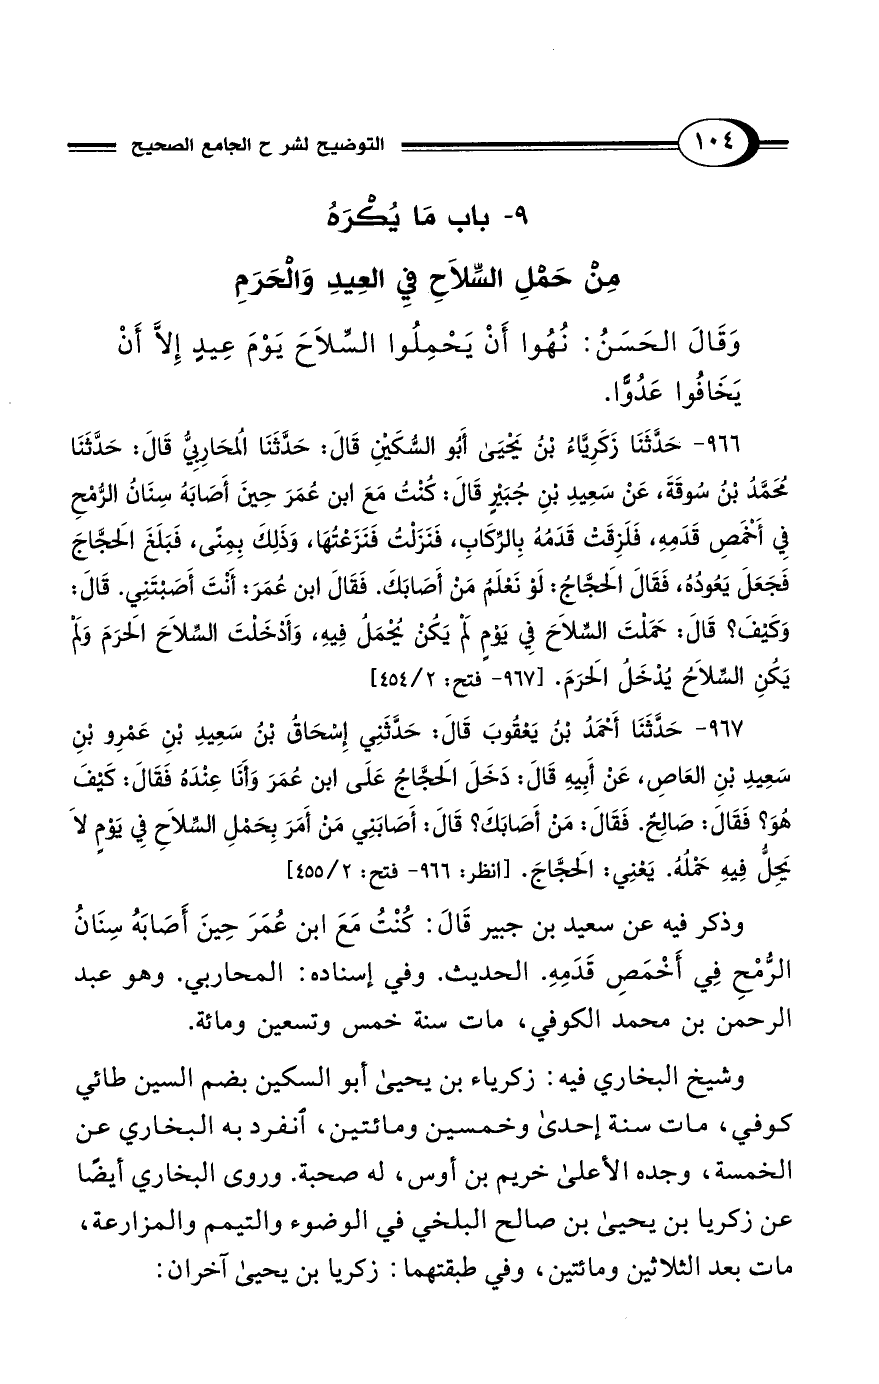 ١٠٤ التوضيح لشرح الجامع الصحيح
٩- باب مَا يُكْرَهُ
مِنْ حَمْلِ السِّلاَحِ فِي العِيدِ وَالْحَرَمِ
وَقَالَ الحَسَنُ: نُهُوا أَنْ يَحْمِلُوا السِّلاَحَ يَوْمَ عِيدٍ إِلاَّ أَنْ
يَخَافُوا عَدُوًّا.
٩٦٦- حَدَّثَنَا زَكَرِيَّاءُ بْنُ يَحْيَىٰ أَبُو السُّكَيْنِ قَالَ: حَدَّثَنَا المُحَارِبِيُّ قَالَ: حَدَّثَنَا
مُحَمَّدُ بْنُ سُوقَةَ، عَنْ سَعِيدِ بْنِ جُبَيْرٍ قَالَ: كُنْتُ مَعَ ابن عُمَرَ حِينَ أَصَابَهُ سِنَانُ الرُّمْحِ
فِي أَخْمَصِ قَدَمِهِ، فَلَزِقَتْ قَدَمُهُ بِالرِّكَابِ، فَنَزَلْتُ فَنَزَعْتُهَا، وَذَلِكَ بِمِنًى، فَبَلَغَ الحَجَّاجَ
فَجَعَلَ يَعُودُهُ، فَقَالَ الحَجَّاجُ: لَوْ نَعْلَمُ مَنْ أَصَابَكَ. فَقَالَ ابن عُمَرَ: أَنْتَ أَصَبْتَنِي. قَالَ:
وَكَيْفَ؟ قَالَ: حَمَلْتَ السِّلاَحَ فِي يَوْمٍ لَمْ يَكُنْ يُحْمَلُ فِيهِ، وَأَدْخَلْتَ السِّلاَحَ الحَرَمَ وَلَمْ
يَكُنِ السِّلاَحُ يُدْخَلُ الحَرَمَ. [٩٦٧- فتح: ٢/ ٤٥٤]
٩٦٧- حَدَّثَنَا أَحْمَدُ بْنُ يَعْقُوبَ قَالَ: حَدَّثَنِي إِسْحَاقُ بْنُ سَعِيدِ بْنِ عَمْرِو بْنِ
سَعِيدِ بْنِ العَاصِ، عَنْ أَبِيهِ قَالَ: دَخَلَ الحَجَّاجُ عَلَى ابن عُمَرَ وَأَنَا عِنْدَهُ فَقَالَ: كَيْفَ
هُوَ؟ فَقَالَ: صَالِحٌ. فَقَالَ: مَنْ أَصَابَكَ؟ قَالَ: أَصَابَنِي مَنْ أَمَرَ بِحَمْلِ السِّلاَحِ فِي يَوْمٍ لاَ
يَحِلُّ فِيهِ حَمْلُهُ. يَعْنِي: الحَجَّاجَ. [انظر: ٩٦٦- فتح: ٢/ ٤٥٥]
وذكر فيه عن سعيد بن جبير قَالَ: كُنْتُ مَعَ ابن عُمَرَ حِينَ أَصَابَهُ سِنَانُ
الرُّمْحِ فِي أَخْمَصِ قَدَمِهِ. الحديث. وفي إسناده: المحاربي. وهو عبد
الرحمن بن محمد الكوفي، مات سنة خمس وتسعين ومائة.
وشيخ البخاري فيه: زكرياء بن يحيىٰ أبو السكين بضم السين طائي
كوفي، مات سنة إحدىٰ وخمسين ومائتين، ٱنفرد به البخاري عن
الخمسة، وجده الأعلىٰ خريم بن أوس، له صحبة. وروى البخاري أيضًا
عن زكريا بن يحيىٰ بن صالح البلخي في الوضوء والتيمم والمزارعة،
مات بعد الثلاثين ومائتين، وفي طبقتهما: زكريا بن يحيىٰ آخران: